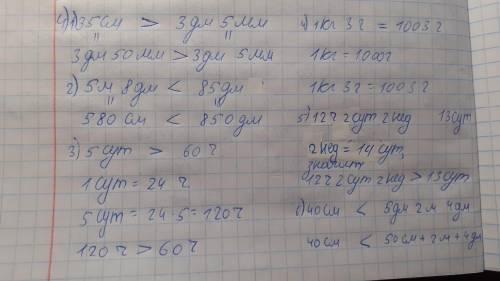 4) 1) 35 см > 3 дм 5 мм
" "
3 дм 50 мм > 3 дм 5 мм
2) 5 м 8 дм < 85 дм
" "
580 см < 850 дм
3) 5 сут > 60 ч
1 сут = 24 ч
5 сут = 24 · 5 = 120 ч
120 ч > 60 ч
4) 1 кг 3 г = 1003 г
1 кг = 1000 г
1 кг 3 г = 1003 г
5) 12 ч 2 сут 2 нед 13 сут
2 нед = 14 сут,
значит
12 ч 2 сут 2 нед > 13 сут
6) 40 см < 5 дм 2 м 4 дм
40 см < 50 см + 2 м + 4 дм